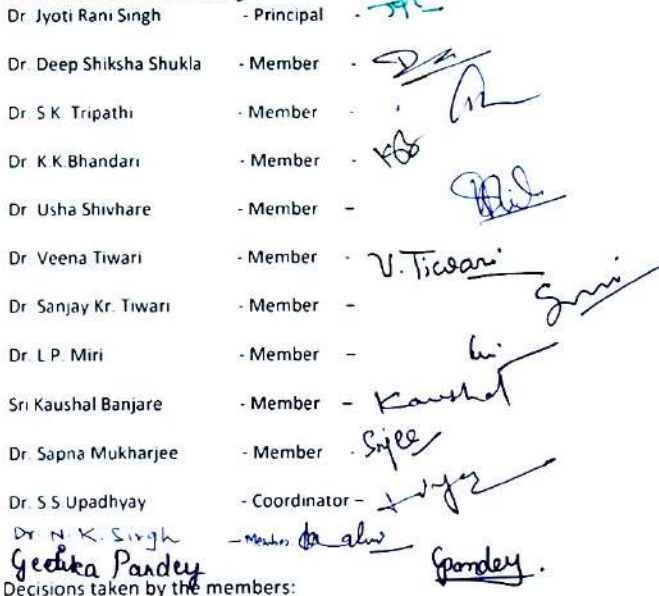 Dr. Jyoti Rani Singh - Principal -
Dr. Deep Shiksha Shukla - Member -
Dr. S.K. Tripathi - Member -
Dr. K.K.Bhandari - Member -
Dr. Usha Shivhare - Member –
Dr. Veena Tiwari - Member - V. Tiwari
Dr. Sanjay Kr. Tiwari - Member –
Dr. L.P. Miri - Member –
Sri Kaushal Banjare - Member – Kaushal
Dr. Sapna Mukharjee - Member -
Dr. S.S.Upadhyay - Coordinator –
Dr. N. K. Singh - Member
Geetika Pandey Gpandey.
Decisions taken by the members: